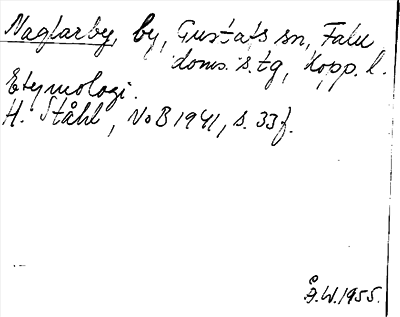 Naglarby, by, Gustafs sn, Falu
doms. s:tg, Kopp. l.
Etymologi.
H. Ståhl, NoB 1941, s. 33f.
Å.W. 1955.